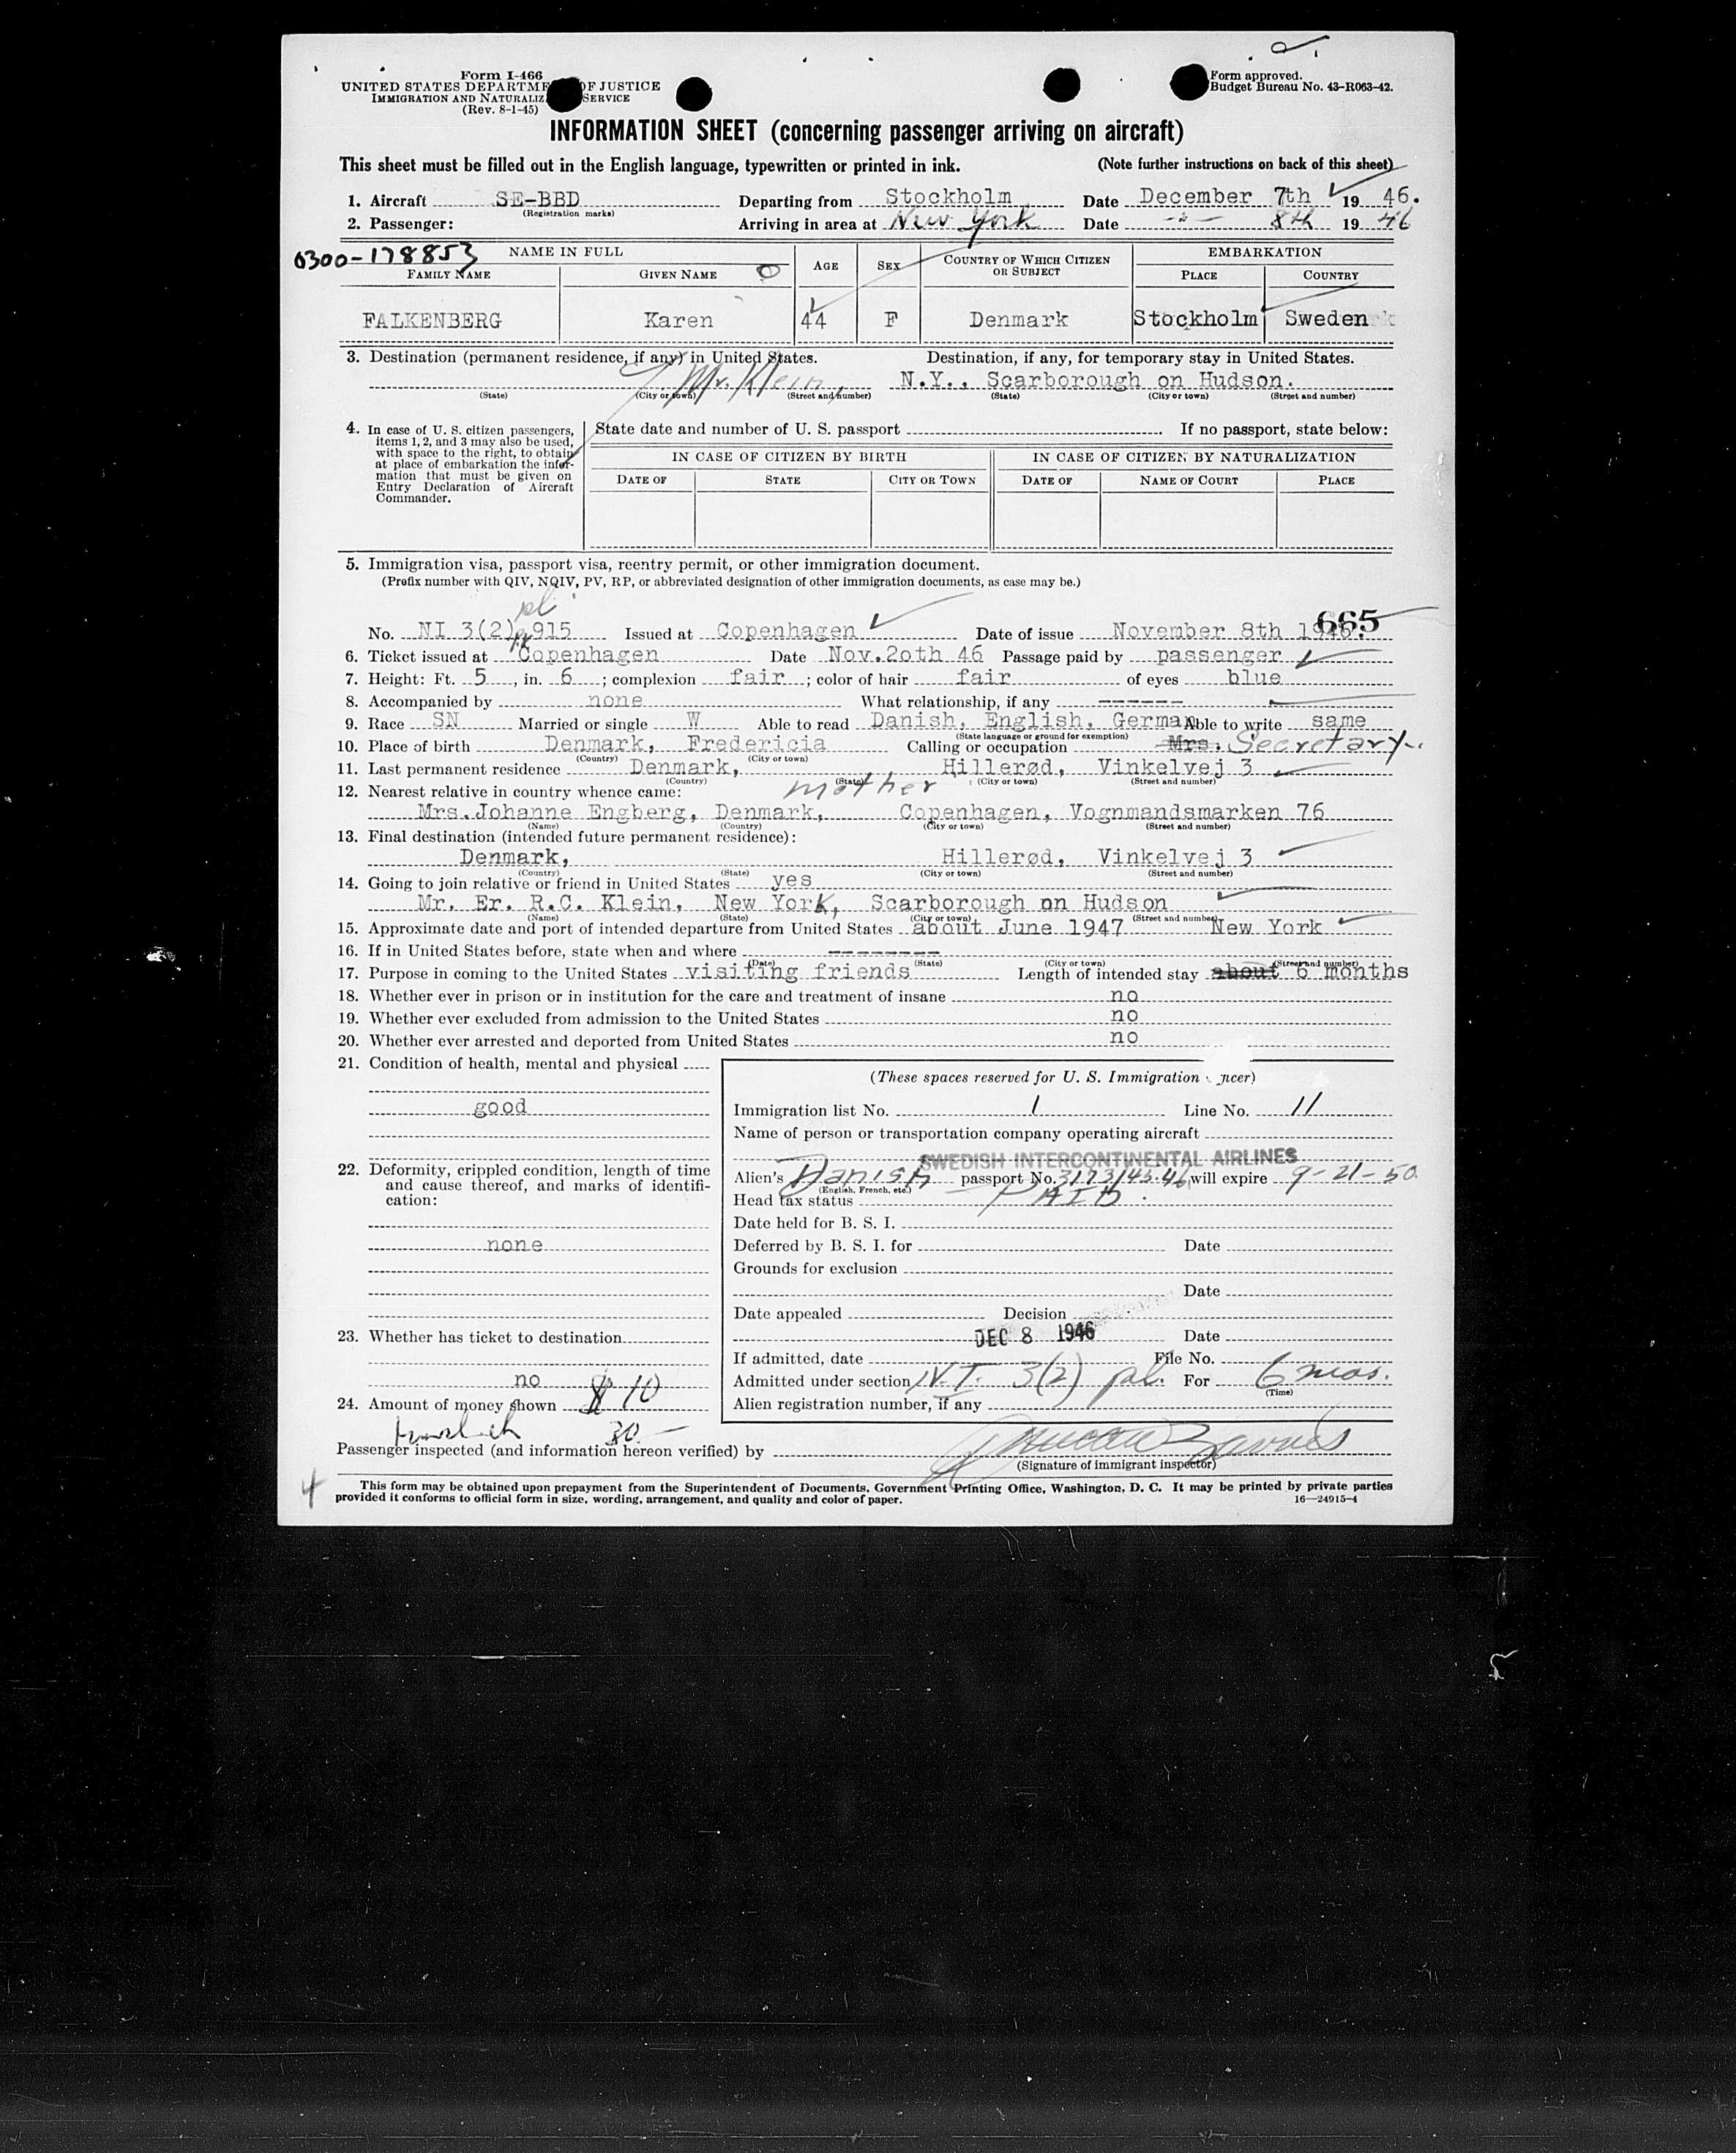 Form I-466
UNITED STATES DEPARTME OF JUSTICE
IMMIGRATION AND NATURALIZ SERVICE
(Rev. 8-1-45)
Form approved.
Budget Bureau No. 43-R063-42.
INFORMATION SHEET (concerning passenger arriving on aircraft)
This sheet must be filled out in the English language, typewritten or printed in ink. (Note further instructions on back of this sheet)
1. Aircraft SE-BBD Departing from Stockholm Date December 7th 1946.
(Registration marks)
2. Passenger: Arriving in area at New York Date -"- 8th 1946
0300-178853 NAME IN FULL AGE SEX COUNTRY OF WHICH CITIZEN OR SUBJECT EMBARKATION
FAMILY NAME GIVEN NAME PLACE COUNTRY
FALKENBERG Karen 44 F Denmark Stockholm Sweden
3. Destination (permanent residence, if any) in United States. Destination, if any, for temporary stay in United States.
Mr. Klein, N.Y., Scarborough on Hudson.
(State) (City or town) (Street and number) (State) (City or town) (Street and number)
4. In case of U. S. citizen passengers, items 1, 2, and 3 may also be used, with space to the right, to obtain at place of embarkation the information that must be given on Entry Declaration of Aircraft Commander.
State date and number of U. S. passport If no passport, state below:
IN CASE OF CITIZEN BY BIRTH IN CASE OF CITIZEN BY NATURALIZATION
DATE OF STATE CITY OR TOWN DATE OF NAME OF COURT PLACE
5. Immigration visa, passport visa, reentry permit, or other immigration document.
(Prefix number with QIV, NQIV, PV, RP, or abbreviated designation of other immigration documents, as case may be.)
pl 665
No. NI 3(2) 915 Issued at Copenhagen Date of issue November 8th 1946.
6. Ticket issued at Copenhagen Date Nov.2oth 46 Passage paid by passenger
7. Height: Ft. 5, in. 6; complexion fair; color of hair fair of eyes blue
8. Accompanied by none What relationship, if any ------
9. Race SN Married or single W Able to read Danish, English, German Able to write same
(State language or ground for exemption)
10. Place of birth Denmark, Fredericia Calling or occupation Mrs. Secretary
(Country) (City or town)
11. Last permanent residence Denmark, Hillerød, Vinkelvej 3
(Country) (State) (City or town) (Street and number)
12. Nearest relative in country whence came: mother
Mrs.Johanne Engberg, Denmark, Copenhagen, Vognmandsmarken 76
(Name) (Country) (City or town) (Street and number)
13. Final destination (intended future permanent residence):
Denmark, Hillerød, Vinkelvej 3
(Country) (State) (City or town) (Street and number)
14. Going to join relative or friend in United States yes
Mr. Er. R.C. Klein, New York, Scarborough on Hudson
(Name) (State) (City or town) (Street and number)
15. Approximate date and port of intended departure from United States about June 1947 New York
16. If in United States before, state when and where --------
(Date) (State) (City or town) (Street and number)
17. Purpose in coming to the United States visiting friends Length of intended stay about 6 months
18. Whether ever in prison or in institution for the care and treatment of insane no
19. Whether ever excluded from admission to the United States no
20. Whether ever arrested and deported from United States no
21. Condition of health, mental and physical
good
22. Deformity, crippled condition, length of time and cause thereof, and marks of identification:
none
23. Whether has ticket to destination
no
24. Amount of money shown $10
30.-
(These spaces reserved for U. S. Immigration ficer)
Immigration list No. 1 Line No. 11
Name of person or transportation company operating aircraft
SWEDISH INTERCONTINENTAL AIRLINES
Alien's Danish passport No. 3173/45.46 will expire 9-21-50
(English, French, etc.)
Head tax status PAID
Date held for B. S. I.
Deferred by B. S. I. for Date
Grounds for exclusion
Date
Date appealed Decision
DEC 8 1946 Date
If admitted, date File No.
Admitted under section 3(2) pl. For 6 mos.
(Time)
Alien registration number, if any
Passenger inspected (and information hereon verified) by
(Signature of immigrant inspector)
4
This form may be obtained upon prepayment from the Superintendent of Documents, Government Printing Office, Washington, D. C. It may be printed by private parties
provided it conforms to official form in size, wording, arrangement, and quality and color of paper. 16—24915-4